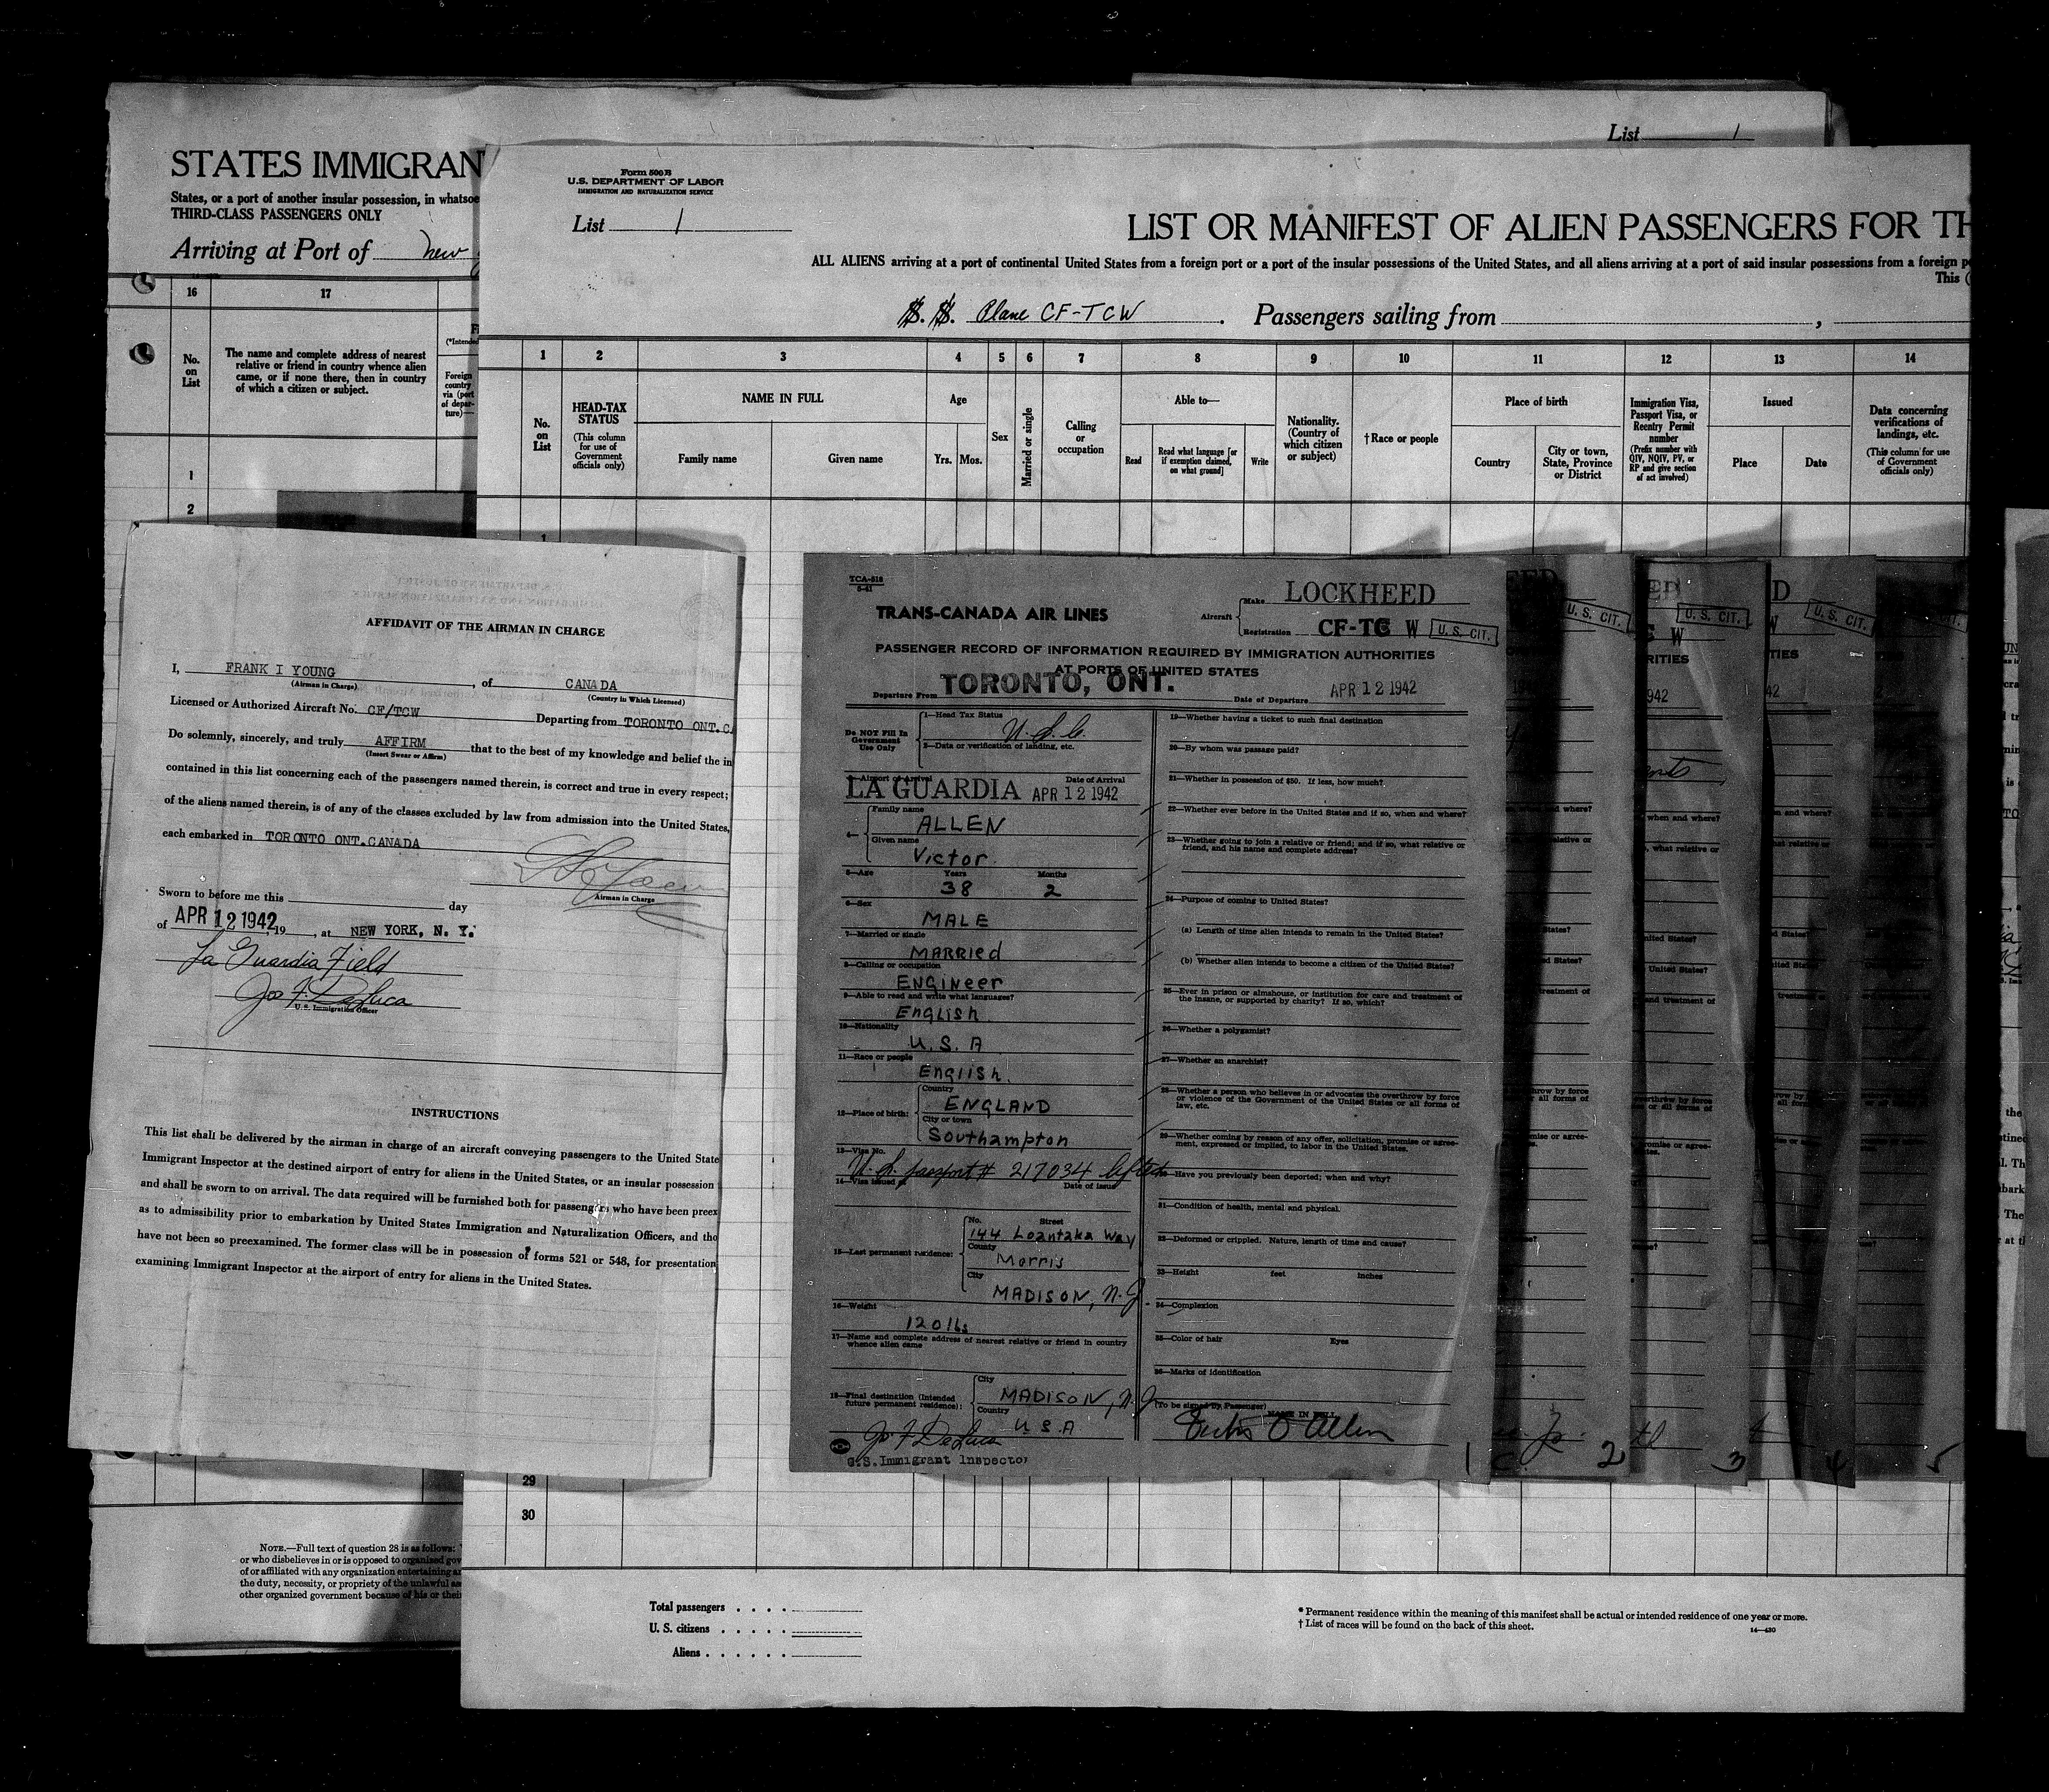 List 1
STATES IMMIGRAN
States, or a port of another insular possession, in whatsoe
THIRD-CLASS PASSENGERS ONLY
Arriving at Port of new
16 17
No. on List
The name and complete address of nearest
relative or friend in country whence alien
came, or if none there, then in country
of which a citizen or subject.
(*Intended
Foreign
country
via (port
of depar-
ture)—
1
2
Form 500B
U.S. DEPARTMENT OF LABOR
IMMIGRATION AND NATURALIZATION SERVICE
List 1
LIST OR MANIFEST OF ALIEN PASSENGERS FOR TH
ALL ALIENS arriving at a port of continental United States from a foreign port or a port of the insular possessions of the United States, and all aliens arriving at a port of said insular possessions from a foreign p
This (
S. S. Plane CF-TCW. Passengers sailing from ,
1 2 3 4 5 6 7 8 9 10 11 12 13 14
No. on List
HEAD-TAX STATUS
(This column for use of Government officials only)
NAME IN FULL
Family name Given name
Age
Yrs. Mos.
Sex
Married or single
Calling or occupation
Able to—
Read
Read what language [or if exemption claimed, on what ground]
Write
Nationality. (Country of which citizen or subject)
†Race or people
Place of birth
Country
City or town, State, Province or District
Immigration Visa, Passport Visa, or Reentry Permit number
(Prefix number with QIV, NQIV, PV, or RP and give section of act involved)
Issued
Place Date
Data concerning verifications of landings, etc.
(This column for use of Government officials only)
1
AFFIDAVIT OF THE AIRMAN IN CHARGE
I, FRANK I YOUNG, of CANADA
(Airman in Charge) (Country in Which Licensed)
Licensed or Authorized Aircraft No. CF/TCW Departing from TORONTO ONT.C
Do solemnly, sincerely, and truly AFFIRM that to the best of my knowledge and belief the in
(Insert Swear or Affirm)
contained in this list concerning each of the passengers named therein, is correct and true in every respect;
of the aliens named therein, is of any of the classes excluded by law from admission into the United States,
each embarked in TORONTO ONT.CANADA
Airman in Charge
Sworn to before me this day
of APR 12 1942, 19 , at NEW YORK, N. Y.
La Guardia Field
Jos F. DeLuca
U.S. Immigration Officer
INSTRUCTIONS
This list shall be delivered by the airman in charge of an aircraft conveying passengers to the United State
Immigrant Inspector at the destined airport of entry for aliens in the United States, or an insular possession
and shall be sworn to on arrival. The data required will be furnished both for passengers who have been preex
as to admissibility prior to embarkation by United States Immigration and Naturalization Officers, and tho
have not been so preexamined. The former class will be in possession of forms 521 or 548, for presentation
examining Immigrant Inspector at the airport of entry for aliens in the United States.
TCA-518
5-41
TRANS-CANADA AIR LINES
Aircraft Make LOCKHEED
Registration CF-TC W U. S. CIT.
PASSENGER RECORD OF INFORMATION REQUIRED BY IMMIGRATION AUTHORITIES
AT PORTS OF UNITED STATES
Departure From TORONTO, ONT. Date of Departure APR 12 1942
Do NOT Fill In Government Use Only
1—Head Tax Status U.S.C.
2—Data or verification of landing, etc.
3—Airport of Arrival Date of Arrival
LA GUARDIA APR 12 1942
4— Family name
ALLEN
Given name
Victor
5—Age Years Months
38 2
6—Sex
MALE
7—Married or single
MARRied
8—Calling or occupation
ENGINeer
9—Able to read and write what languages?
English
10—Nationality
U.S.A
11—Race or people
English.
12—Place of birth: Country
ENGLAND
City or town
Southampton
13—Visa No.
U.S. passport # 217034 lifted
14—Visa issued Date of issue
15—Last permanent residence: No. Street
144 Loantaka Way
County
Morris
City
MADISON, N.J.
16—Weight
120 lbs
17—Name and complete address of nearest relative or friend in country
whence alien came
18—Final destination (Intended future permanent residence): City
MADISON, N.J
Country
U.S.A
Jos F DeLuca
U.S. Immigrant Inspector
19—Whether having a ticket to such final destination
20—By whom was passage paid?
21—Whether in possession of $50. If less, how much?
22—Whether ever before in the United States and if so, when and where?
23—Whether going to join a relative or friend; and if so, what relative or
friend, and his name and complete address?
24—Purpose of coming to United States?
(a) Length of time alien intends to remain in the United States?
(b) Whether alien intends to become a citizen of the United States?
25—Ever in prison or almshouse, or institution for care and treatment of
the insane, or supported by charity? If so, which?
26—Whether a polygamist?
27—Whether an anarchist?
28—Whether a person who believes in or advocates the overthrow by force
or violence of the Government of the United States or all forms of
law, etc.
29—Whether coming by reason of any offer, solicitation, promise or agree-
ment, expressed or implied, to labor in the United States.
30—Have you previously been deported; when and why?
31—Condition of health, mental and physical.
32—Deformed or crippled. Nature, length of time and cause?
33—Height feet inches
34—Complexion
35—Color of hair Eyes
36—Marks of identification
(To be signed by Passenger) NAME IN FULL
1 2 3 4 5
U. S. CIT.
U. S. CIT.
U. S. CIT.
29
30
NOTE.—Full text of question 28 is as follows:
or who disbelieves in or is opposed to organized gov
of or affiliated with any organization entertaining a
the duty, necessity, or propriety of the unlawful as
other organized government because of his or their
Total passengers . . . .
U. S. citizens . . . . .
Aliens . . . . . .
* Permanent residence within the meaning of this manifest shall be actual or intended residence of one year or more.
† List of races will be found on the back of this sheet.
14—430